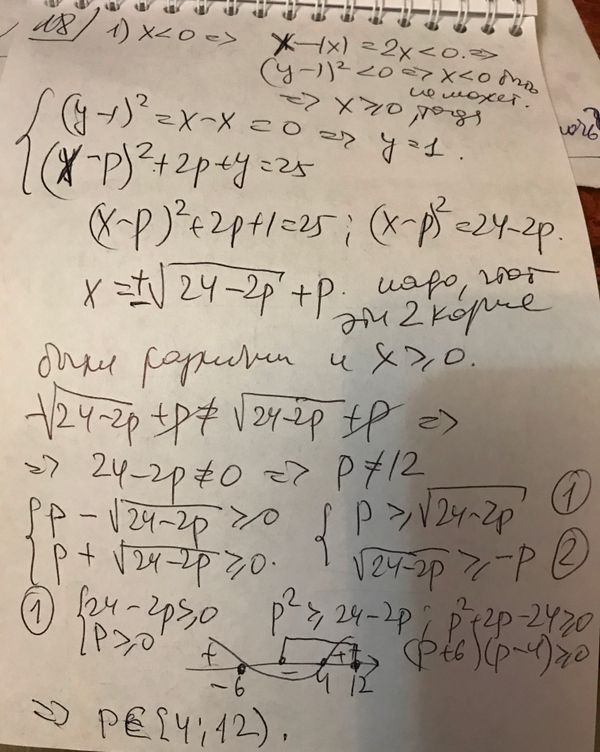 №18 1) x<0 => x-|x|=2x<0. =>
(y-1)²<0 => x<0 быть
не может.
=> x≥0, тогда
(y-1)²=x-x=0 => y=1.
(x-p)²+2p+y=25
(x-p)²+2p+1=25; (x-p)²=24-2p.
x=±√(24-2p)+p. надо, чтоб
эти 2 корня
были различны и x≥0.
-√(24-2p)+p≠√(24-2p)+p =>
=> 24-2p≠0 => p≠12
{ p-√(24-2p)≥0 { p≥√(24-2p) ①
{ p+√(24-2p)≥0. { √(24-2p)≥-p ②
① { 24-2p≥0 p²≥24-2p; p²+2p-24≥0
{ p≥0 (p+6)(p-4)≥0
+ - +
-6 4 12
=> p∈[4;12).